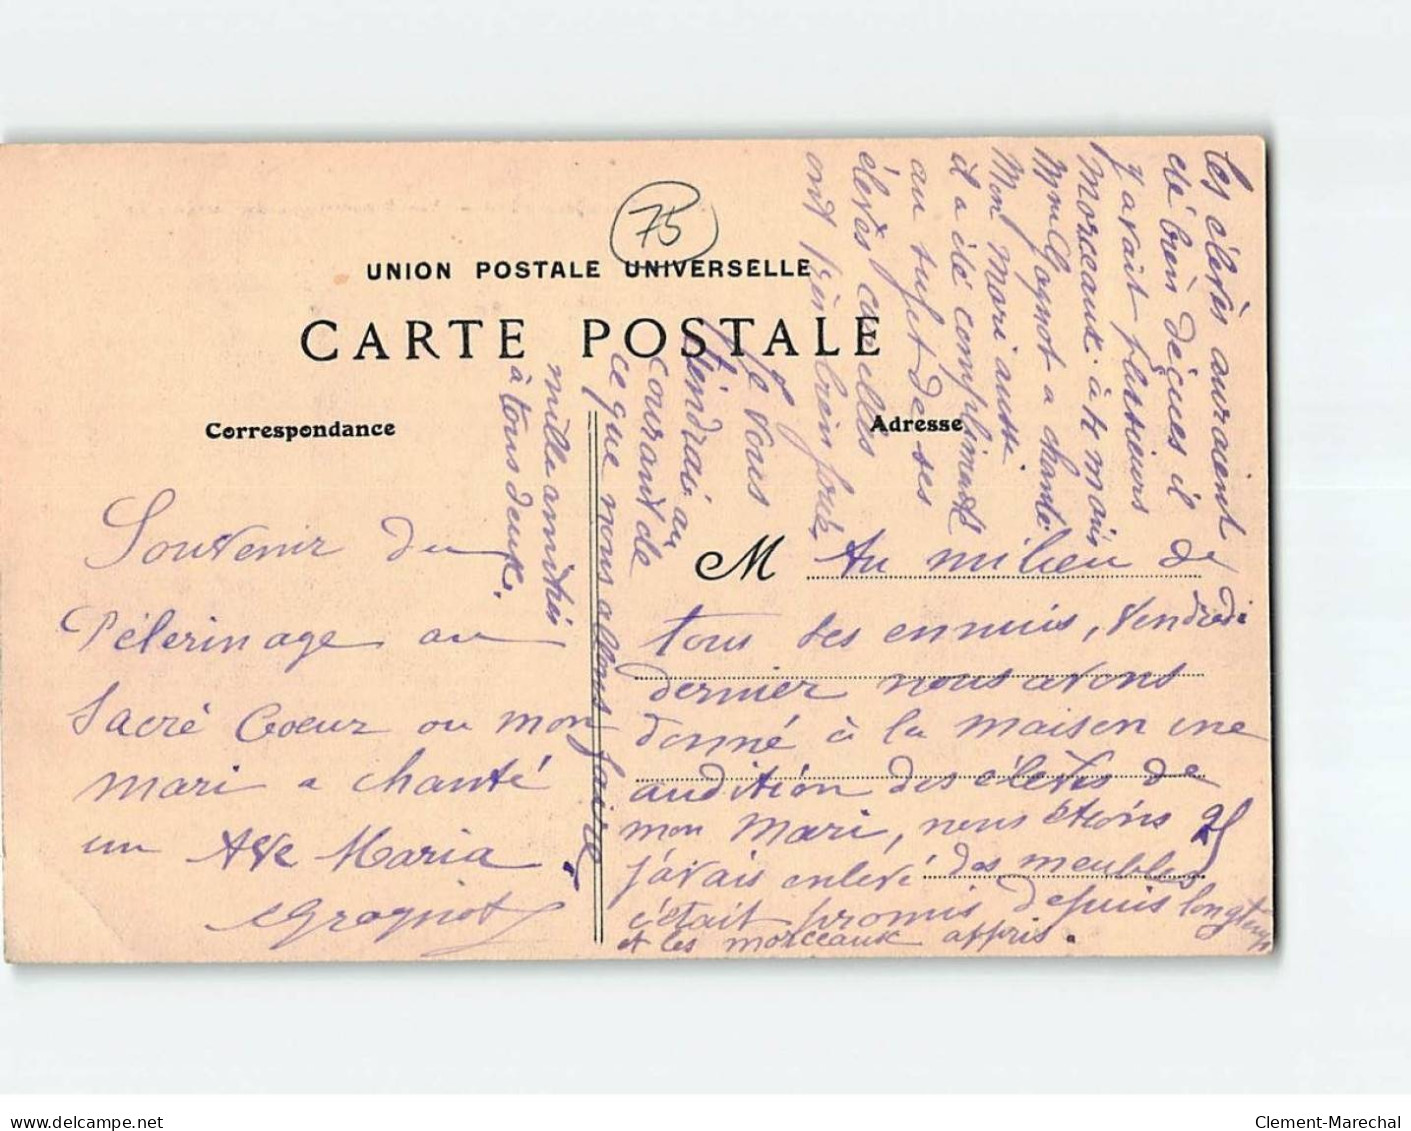 75
UNION POSTALE UNIVERSELLE
CARTE POSTALE
Correspondance
Adresse
Souvenir du
Pélerinage au
Sacré Coeur ou mon
mari a chanté
un Ave Maria
M Au milieu de
tous ses ennuis, Vendredi
dernier nous avons
donné à la maison une
audition des élèves de
mon Mari, nous étions 25
j'avais enlevé des meubles
c'était promis depuis longtemps
et les morceaux appris.
les élèves auraient
été bien déçues il
y avait plusieurs
Morceaux à 4 mains
Mme Gagnot a chanté
Mon Mari aussi.
il a été compliments
au sujet de ses
élèves car elles
ont bien
Je vous
tiendrai au
courant de
ce que nous allons faire
mille amitiés
à tous deux.
delcampe.net
Clement-Marechal